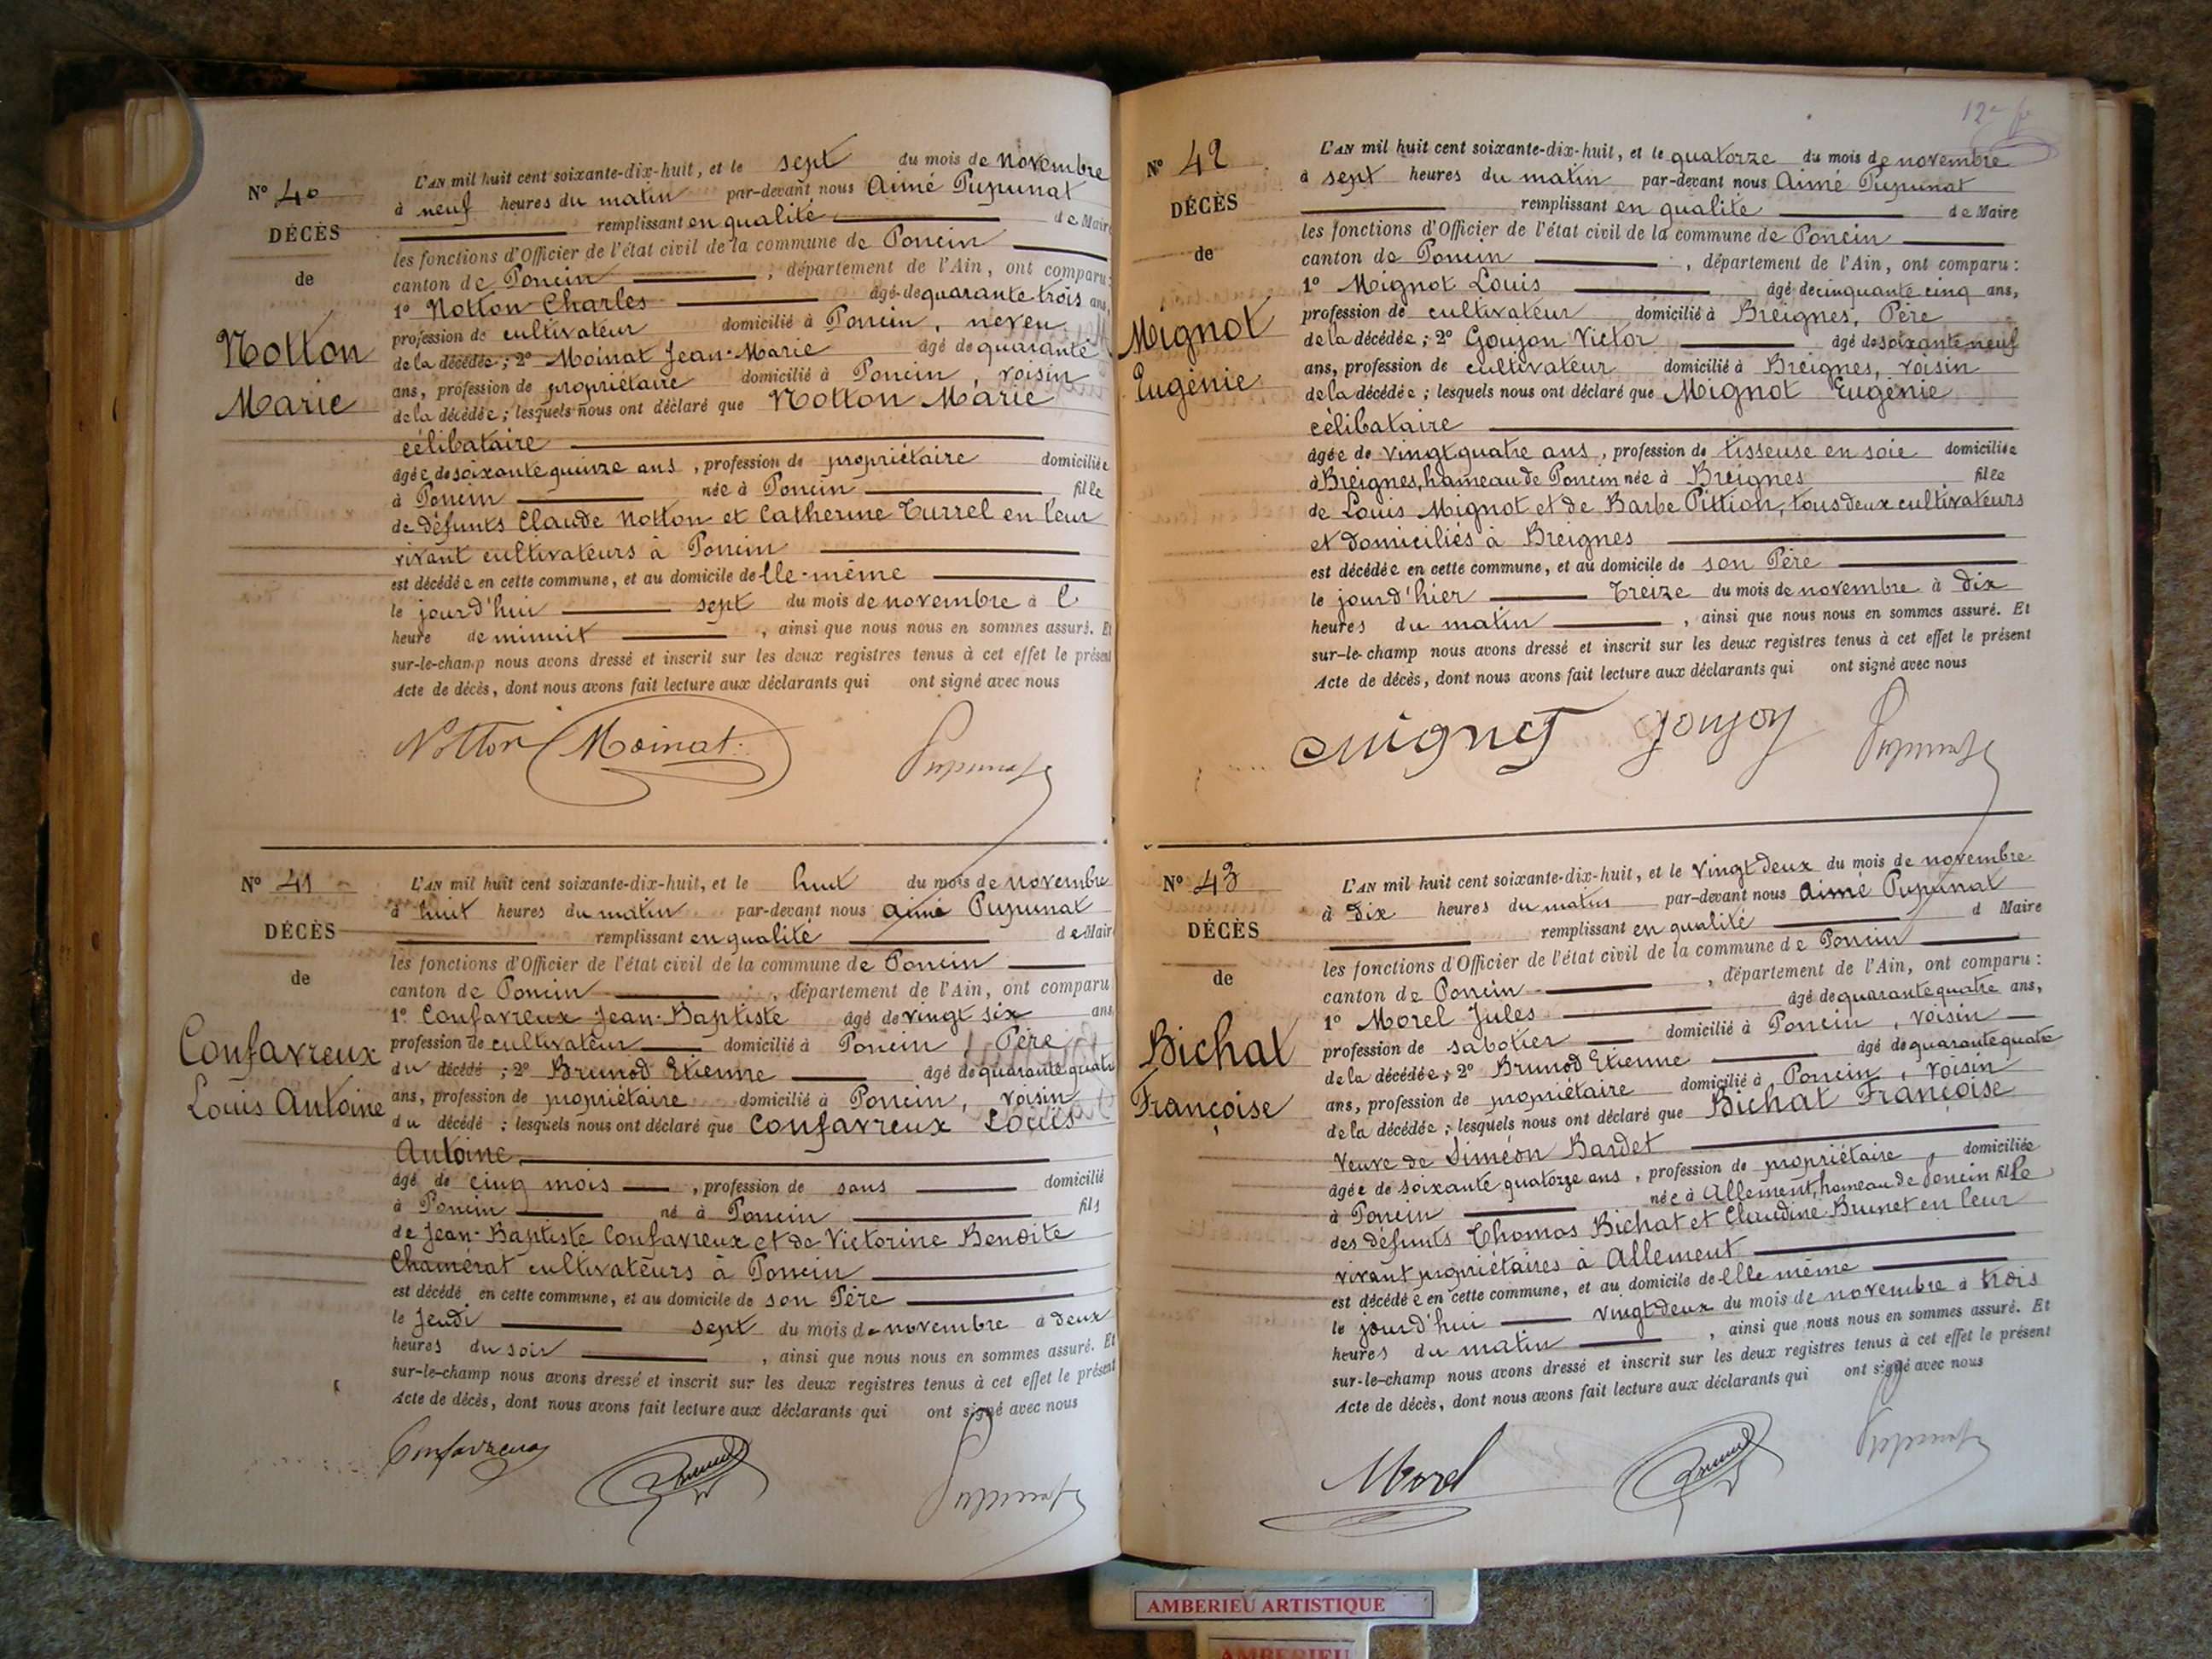 N° 40
DÉCÈS
de
Notton
Marie
L'AN mil huit cent soixante-dix-huit, et le sept du mois de novembre
à neuf heures du matin par-devant nous Aimé Pupunat
remplissant en qualité de Maire
les fonctions d'Officier de l'état civil de la commune de Poncin
canton de Poncin, département de l'Ain, ont comparu:
1° Notton Charles âgé de quarante trois ans,
profession de cultivateur domicilié à Poncin, neveu
de la décédée; 2° Moinat Jean-Marie âgé de quarante
ans, profession de propriétaire domicilié à Poncin, voisin
de la décédée; lesquels nous ont déclaré que Notton Marie
célibataire
âgée de soixante quinze ans, profession de propriétaire domiciliée
à Poncin née à Poncin fille
de défunts Claude Notton et Catherine Turrel en leur
vivant cultivateurs à Poncin
est décédée en cette commune, et au domicile de elle-même
le jourd'hui sept du mois de novembre à l
heure de minuit, ainsi que nous nous en sommes assuré. Et
sur-le-champ nous avons dressé et inscrit sur les deux registres tenus à cet effet le présent
Acte de décès, dont nous avons fait lecture aux déclarants qui ont signé avec nous
Notton Moinat Pupunat
N° 41
DÉCÈS
de
Confavreux
Louis Antoine
L'AN mil huit cent soixante-dix-huit, et le huit du mois de novembre
à huit heures du matin par-devant nous Aimé Pupunat
remplissant en qualité de Mair
les fonctions d'Officier de l'état civil de la commune de Poncin
canton de Poncin, département de l'Ain, ont comparu
1° Confavreux Jean-Baptiste âgé de vingt six ans
profession de cultivateur domicilié à Poncin, Père
du décédé; 2° Brunod Etienne âgé de quarante quatre
ans, profession de propriétaire domicilié à Poncin, voisin
du décédé; lesquels nous ont déclaré que Confavreux Louis
Antoine,
âgé de cinq mois, profession de sans domicilié
à Poncin né à Poncin fils
de Jean-Baptiste Confavreux et de Victorine Benoite
Chamérat cultivateurs à Poncin
est décédé en cette commune, et au domicile de son Père
le Jeudi sept du mois de novembre à deux
heures du soir, ainsi que nous nous en sommes assuré. Et
sur-le-champ nous avons dressé et inscrit sur les deux registres tenus à cet effet le présent
Acte de décès, dont nous avons fait lecture aux déclarants qui ont signé avec nous
Confavreux Brunod Pupunat
N° 42
DÉCÈS
de
Mignot
Eugénie
L'AN mil huit cent soixante-dix-huit, et le quatorze du mois de novembre
à sept heures du matin par-devant nous Aimé Pupunat
remplissant en qualité de Maire
les fonctions d'Officier de l'état civil de la commune de Poncin
canton de Poncin, département de l'Ain, ont comparu:
1° Mignot Louis âgé de cinquante cinq ans,
profession de cultivateur domicilié à Breignes, Père
de la décédée; 2° Goujon Victor âgé de soixante neuf
ans, profession de cultivateur domicilié à Breignes, voisin
de la décédée; lesquels nous ont déclaré que Mignot Eugénie
célibataire
âgée de vingt quatre ans, profession de tisseuse en soie domiciliée
à Breignes, hameau de Poncin née à Breignes fille
de Louis Mignot et de Barbe Pittion, tous deux cultivateurs
et domiciliés à Breignes
est décédée en cette commune, et au domicile de son Père
le jourd'hier Treize du mois de novembre à dix
heures du matin, ainsi que nous nous en sommes assuré. Et
sur-le-champ nous avons dressé et inscrit sur les deux registres tenus à cet effet le présent
Acte de décès, dont nous avons fait lecture aux déclarants qui ont signé avec nous
Mignot goujon Pupunat
N° 43
DÉCÈS
de
Bichat
Françoise
L'AN mil huit cent soixante-dix-huit, et le vingt deux du mois de novembre
à dix heures du matin par-devant nous Aimé Pupunat
remplissant en qualité d Maire
les fonctions d'Officier de l'état civil de la commune de Poncin
canton de Poncin, département de l'Ain, ont comparu:
1° Morel Jules âgé de quarante quatre ans,
profession de sabotier domicilié à Poncin, voisin
de la décédée; 2° Brunod Etienne âgé de quarante quatre
ans, profession de propriétaire domicilié à Poncin, voisin
de la décédée; lesquels nous ont déclaré que Bichat Françoise
Veuve de Siméon Bardet
âgée de soixante quatorze ans, profession de propriétaire, domiciliée
à Poncin née à Allement, hameau de Poncin fille
des défunts Thomas Bichat et Claudine Brunet en leur
vivant propriétaires à Allement
est décédée en cette commune, et au domicile de elle même
le jourd'hui vingt deux du mois de novembre à trois
heures du matin, ainsi que nous nous en sommes assuré. Et
sur-le-champ nous avons dressé et inscrit sur les deux registres tenus à cet effet le présent
Acte de décès, dont nous avons fait lecture aux déclarants qui ont signé avec nous
Morel Brunod Pupunat
AMBERIEU ARTISTIQUE
AMBERIEU